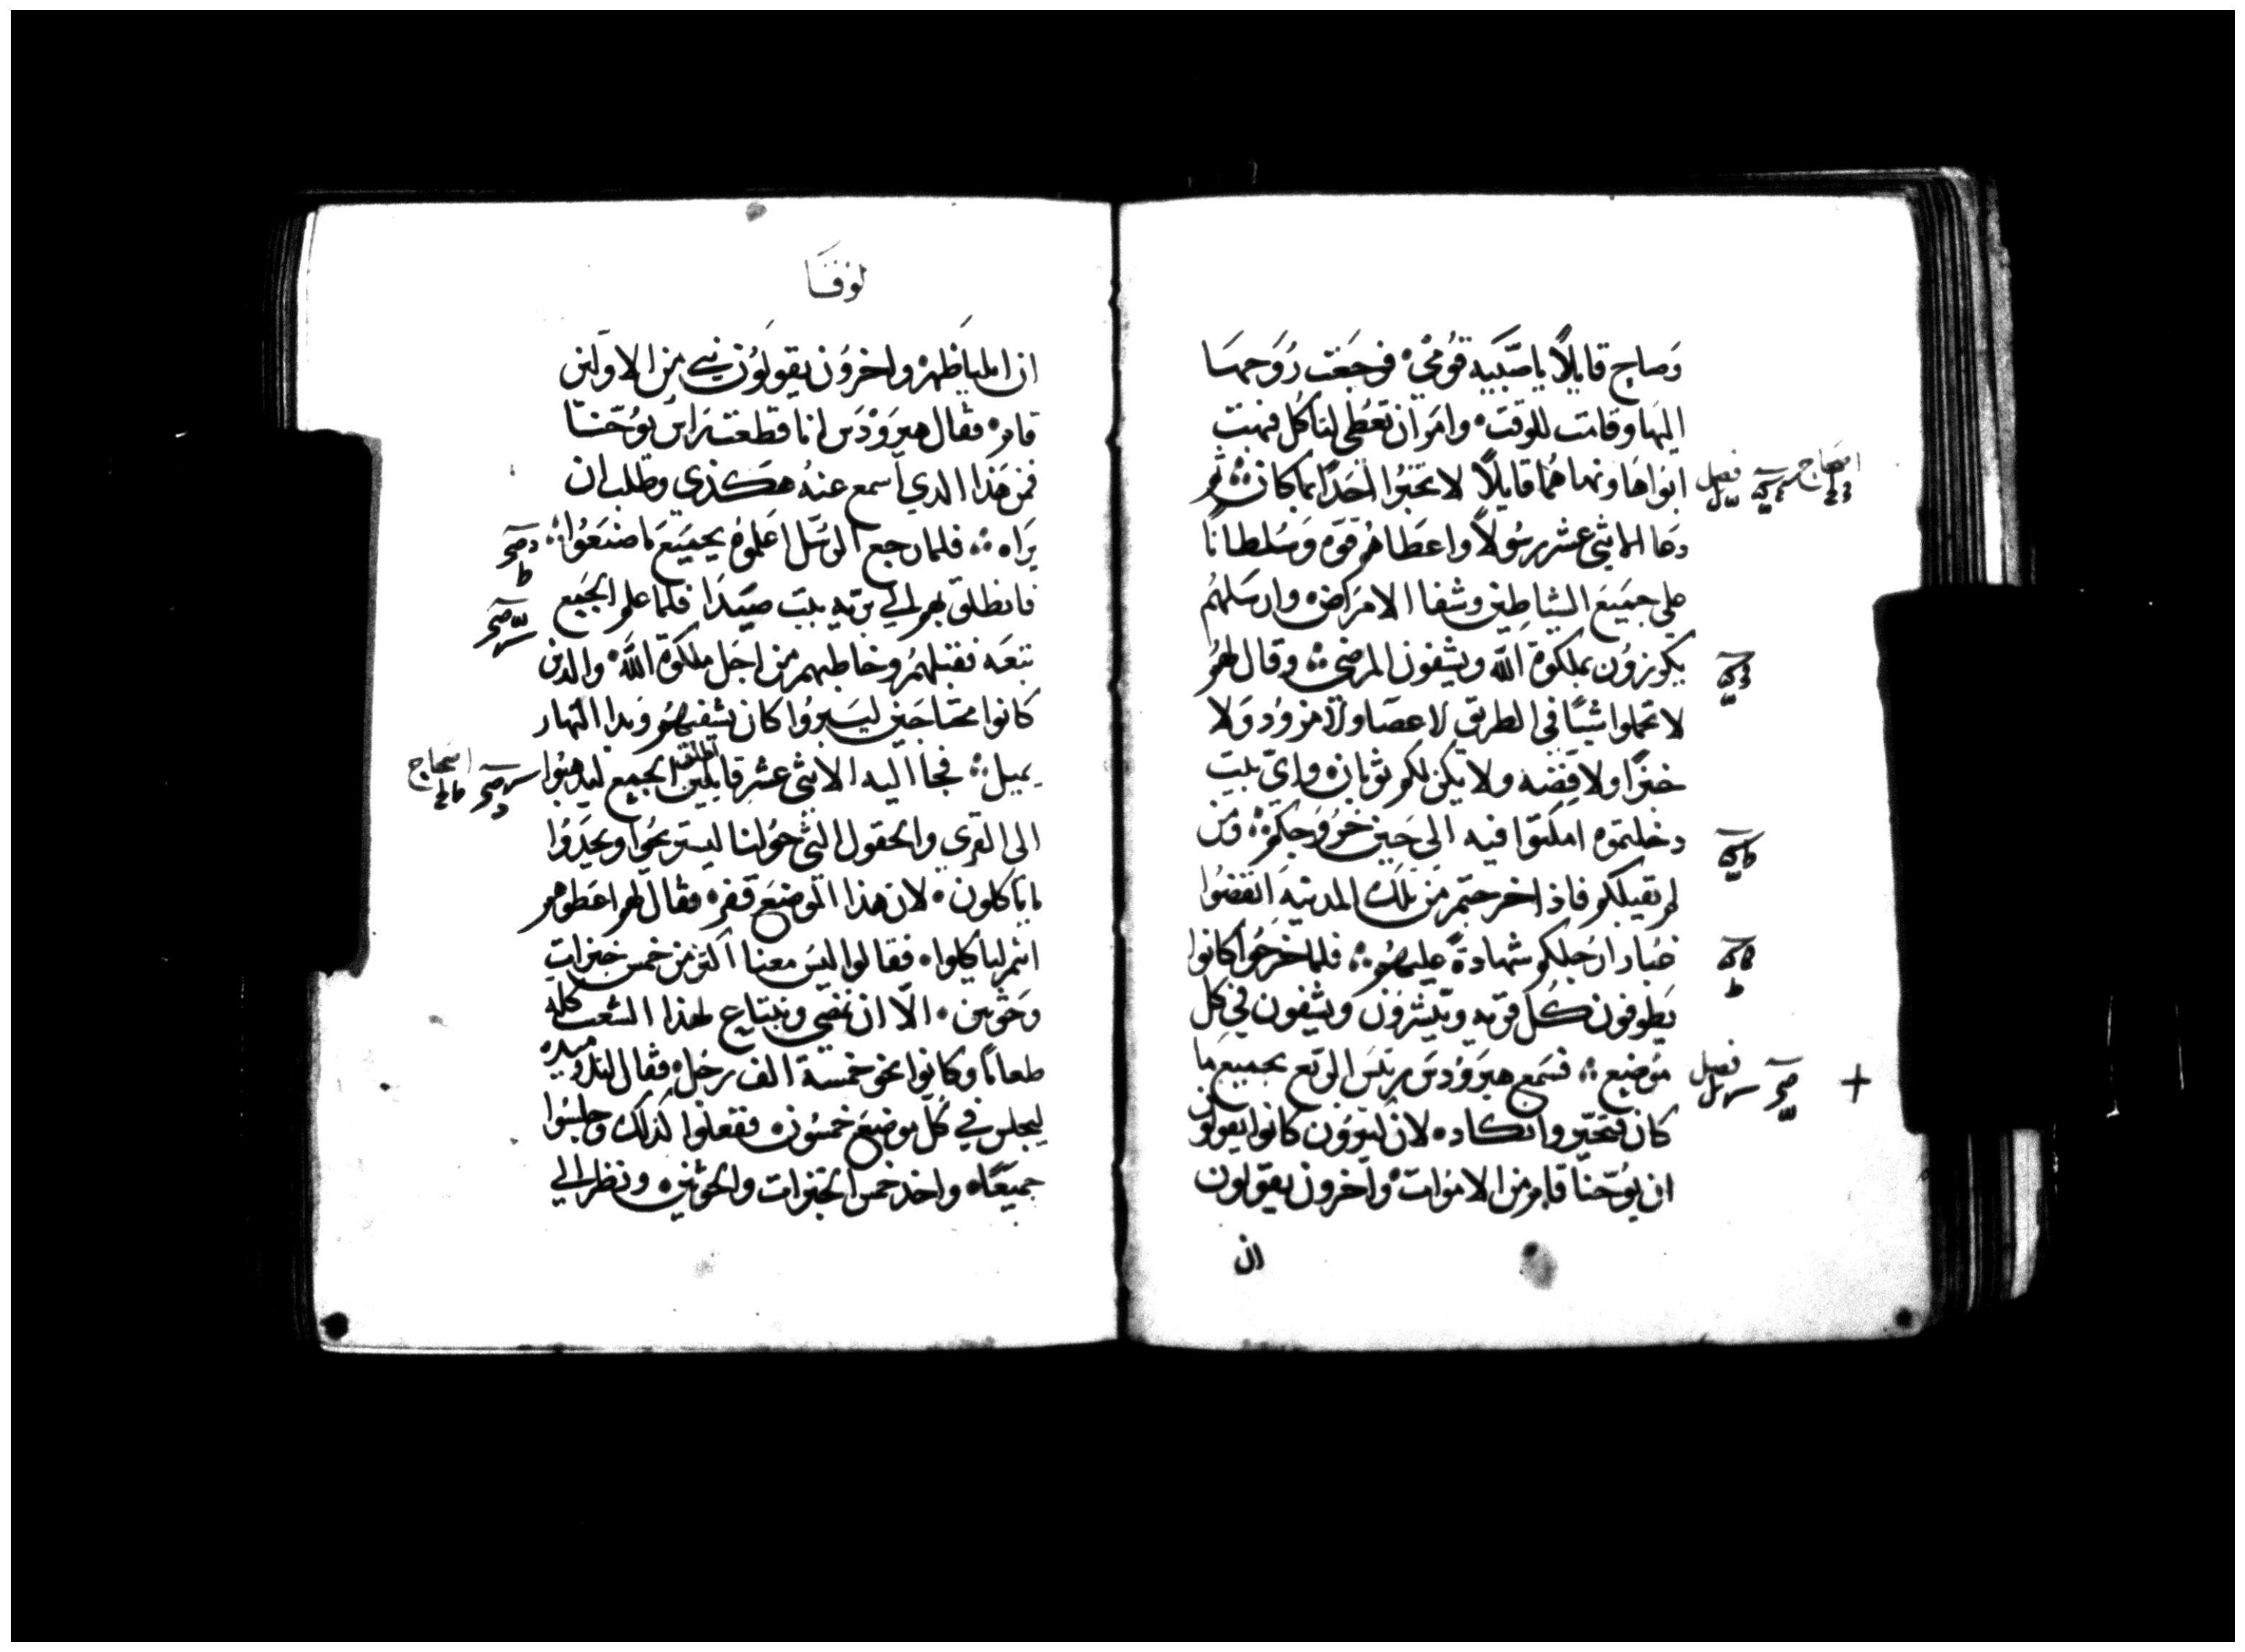 وَصاح قايلاً ياصَبيه قوُمي فرجَعَت رُوَحهَا
اليهَا وقامَت للوقت وامَر ان تعُطي لتاكل فبهتَ
ابَواهَا ونهاهُما قايلاً لا تخبرُوا احَدًا بما كان ثم
فصل
دعَا الاثني عشر رسُولاً واعطَاهُم قوه وَسُلطانًا
على جميَع الشياطين وشفا الامرَاض وارسَلهُم
يكرزوُن بملكوة الله ويشفون المرضي وقال لهُم
لا تحملوا شيئًا في الطريق لا عصَا ولا مزوُد وَلا
خبزًا ولا فضه ولا يكن لكم ثوبان واي بيت
دخلتموه امكثوا فيه الى حَين خرُوجكم وَمَن
لم يقبلكم فاذا خرجتم مَن تلك المدينه انفضُوا
غبُار ارجُلكم شهادة عليهمُ فلما خرجُوا كانوا
يَطوفون كُل قريه ويبَشروَن ويشفون في كل
موَضع فسَمع هيروُدس رئيس الربع بجميعَ ما
فصل
كان فتحَيّر وانكاده لان كثيروُن كانوا يقولون
ان يوُحنّا قام من الاموات واخرون يقولون
ان
لوُقَا
ان ايليا ظهر واخروُن يقولوُن نبي من الاولين
قام فقال هيروُدَس انا قطعت رَاس يوُحَنا
فمن هَذا الدي اسمع عنهُ هَكذي وطلب ان
يرَاه فلما رجع الرسُل اعَلموُه بجميَع مَا صنعَوُا
فانطلق بهم الي بريه بيت صيَدَا فلما علم الجميع
تبعَه فقبلهمُ وخاطبهم من اجَل ملكوة الله والدين
كانوا محتاجَين ليَبروُا كان يشفيهمُ وبدا النهار
يميل فجا اليه الاثني عشر قايلين اطلق الجميع ليدهبُوا
الى القري والحقول التي حوُلنا ليستريحُوا ويجَدَوُا
ما ياكلون لان هذا الموُضعَ قفر فقال لهم اعَطوهم
انتم لياكلوا فقالوا ليسَ معنا اكثر من خمس خبزات
وحَوتين الّا ان نمضي ونبتاع لهذا الشعب كله
طعامًا وكانوا نحو خمسة الف رجُل فقال لتلاميده
ليجلس في كُلّ موضعَ خمسُون ففعلوا كذلك وجلسُوا
جميعًا واخد خمس الخبزات والحَوتين ونظر الي